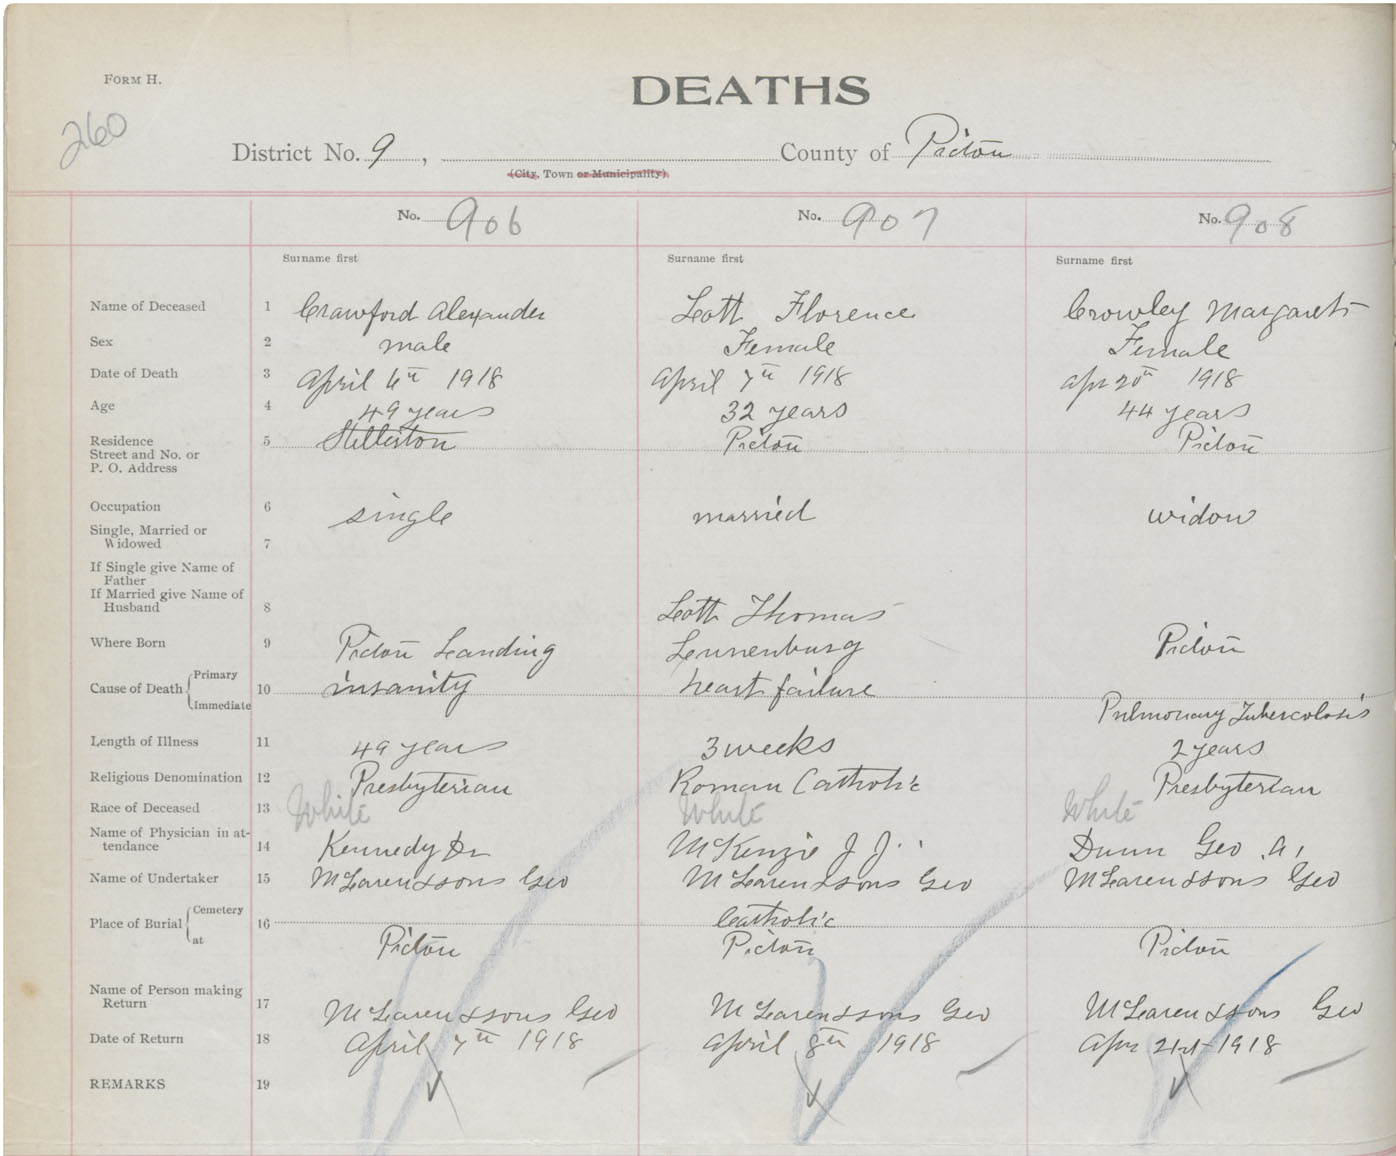 FORM H.
DEATHS
260
District No. 9, County of Pictou
(City, Town or Municipality)
No. 906 No. 907 No. 908
Surname first Surname first Surname first
Name of Deceased 1 Crawford Alexander Lott Florence Crowley Margaret
Sex 2 male Female Female
Date of Death 3 April 6th 1918 April 7th 1918 Apr 20th 1918
Age 4 49 years 32 years 44 years
Residence 5 Stellerton Pictou Pictou
Street and No. or
P. O. Address
Occupation 6 single married widow
Single, Married or
Widowed 7
If Single give Name of
Father
If Married give Name of
Husband 8 Lott Thomas
Where Born 9 Pictou Landing Lunenburg Pictou
Cause of Death { Primary 10 insanity heart failure
Immediate Pulmonary Tubercolosis
Length of Illness 11 49 years 3 weeks 2 years
Religious Denomination 12 Presbyterian Roman Catholic Presbyterian
Race of Deceased 13 White White White
Name of Physician in at-
tendance 14 Kennedy Dr McKenzie J J. Dunn Geo. A.
Name of Undertaker 15 McLaren & sons Geo McLaren & sons Geo McLaren & sons Geo
Place of Burial { Cemetery 16 Catholic
at Pictou Pictou Pictou
Name of Person making
Return 17 McLaren & sons Geo McLaren & sons Geo McLaren & sons Geo
Date of Return 18 April 7th 1918 April 8th 1918 Apr 21st 1918
REMARKS 19